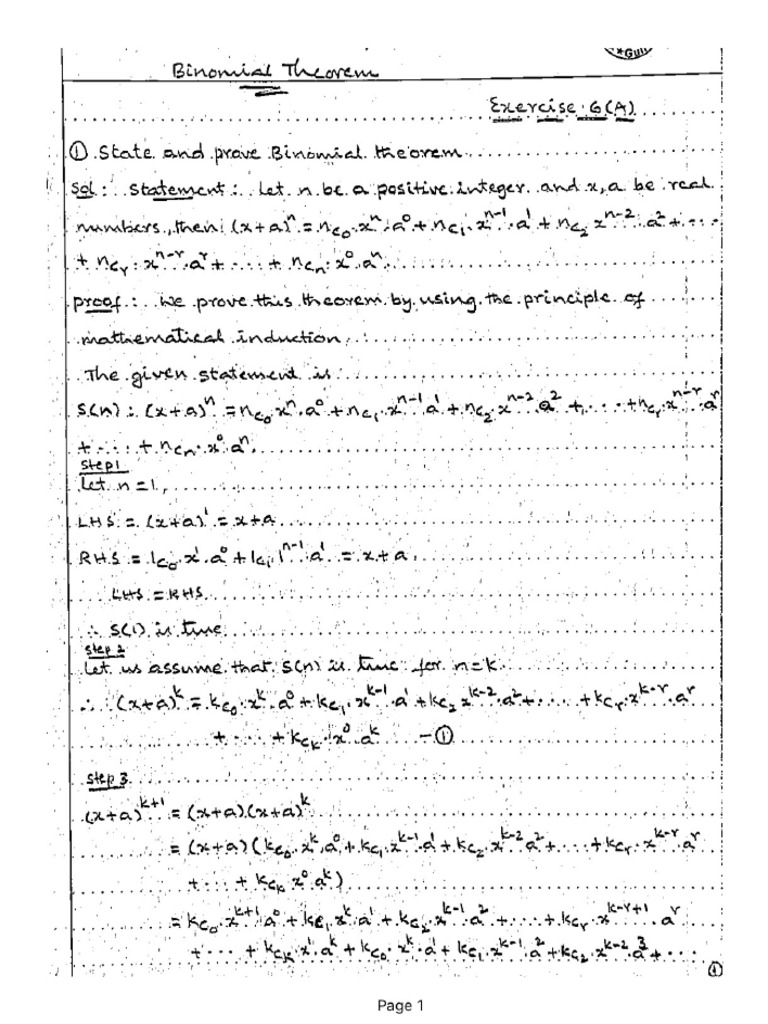 Binomial Theorem
Exercise 6(A)
① State and prove Binomial theorem
Sol: Statement: Let n be a positive integer and x, a be real
numbers, then (x+a)ⁿ = n_{C₀}·xⁿ·a⁰ + n_{C₁}·x^{n-1}·a¹ + n_{C₂} x^{n-2}·a² + ····
+ n_{Cᵣ}·x^{n-r}·aʳ + ···· + n_{Cₙ}·x⁰·aⁿ.
proof: We prove this theorem by using the principle of
mathematical induction.
The given statement is
S(n): (x+a)ⁿ = n_{C₀} xⁿ·a⁰ + n_{C₁}·x^{n-1}·a¹ + n_{C₂}·x^{n-2}·a² + ···· + n_{Cᵣ}·x^{n-r}·aʳ
+ ···· + n_{Cₙ}·x⁰·aⁿ.
Step 1
Let n = 1,
LHS = (x+a)¹ = x+a
RHS = 1_{C₀}·x¹·a⁰ + 1_{C₁} 1^{n-1}·a¹ = x+a.
LHS = RHS
∴ S(1) is true
Step 2
Let us assume that S(n) is true for n=k
∴ (x+a)ᵏ = k_{C₀}·xᵏ·a⁰ + k_{C₁}·x^{k-1}·a¹ + k_{C₂} x^{k-2}·a² + ···· + k_{Cᵣ}·x^{k-r}·aʳ
+ ···· + k_{Cₖ}·x⁰·aᵏ —①
Step 3
(x+a)^{k+1} = (x+a)(x+a)ᵏ
= (x+a)(k_{C₀}·xᵏ·a⁰ + k_{C₁}·x^{k-1}·a¹ + k_{C₂}·x^{k-2}a² + ···· + k_{Cᵣ}·x^{k-r}·aʳ
+ ···· + k_{Cₖ} x⁰·aᵏ)
= k_{C₀}·x^{k+1}·a⁰ + k_{C₁}·xᵏ·a¹ + k_{C₂}·x^{k-1}·a² + ···· + k_{Cᵣ}·x^{k-r+1}·aʳ
+ ···· + k_{Cₖ}·x¹·aᵏ + k_{C₀}·xᵏ·a¹ + k_{C₁}·x^{k-1}·a² + k_{C₂}·x^{k-2}·a³ + ····
①
Page 1